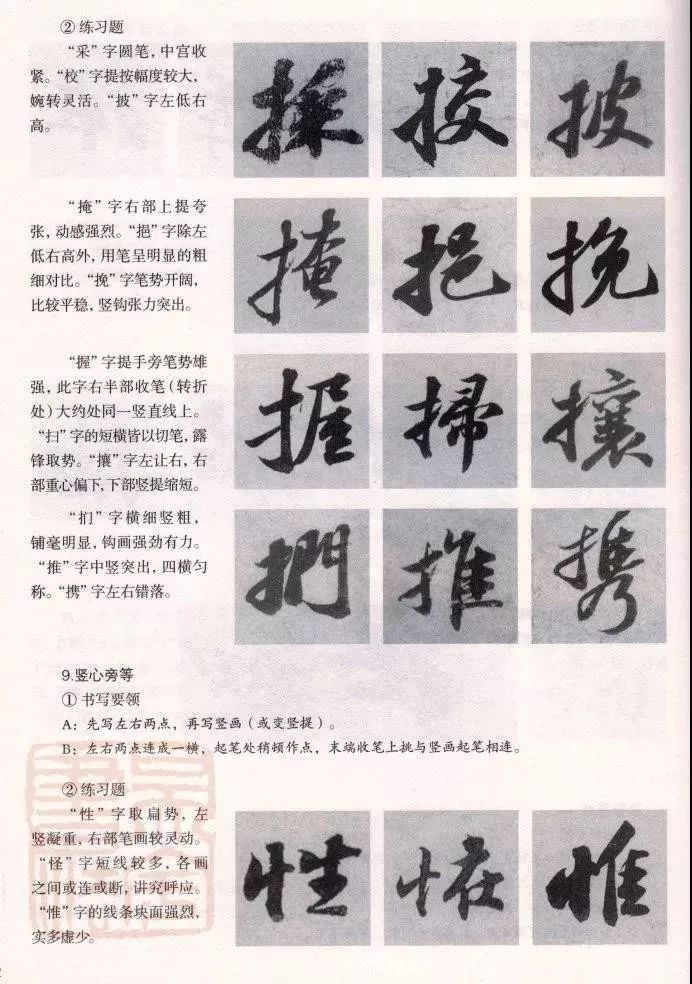 ② 练习题
“采”字圆笔，中宫收
紧。“校”字提按幅度较大，
婉转灵活。“披”字左低右
高。
採 挍 披
“掩”字右部上提夸
张，动感强烈。“挹”字除左
低右高外，用笔呈明显的粗
细对比。“挽”字笔势开阔，
比较平稳，竖钩张力突出。
掩 挹 挽
“握”字提手旁笔势雄
强，此字右半部收笔（转折
处）大约处同一竖直线上。
“扫”字的短横皆以切笔，露
锋取势。“攘”字左让右，右
部重心偏下，下部竖提缩短。
握 掃 攘
“扪”字横细竖粗，
铺毫明显，钩画强劲有力。
“推”字中竖突出，四横匀
称。“携”字左右错落。
捫 推 携
9.竖心旁等
① 书写要领
A：先写左右两点，再写竖画（或变竖提）。
B：左右两点连成一横，起笔处稍顿作点，末端收笔上挑与竖画起笔相连。
② 练习题
“性”字取扁势，左
竖凝重，右部笔画较灵动。
“怪”字短线较多，各画
之间或连或断，讲究呼应。
“惟”字的线条块面强烈，
实多虚少。
性 恠 惟